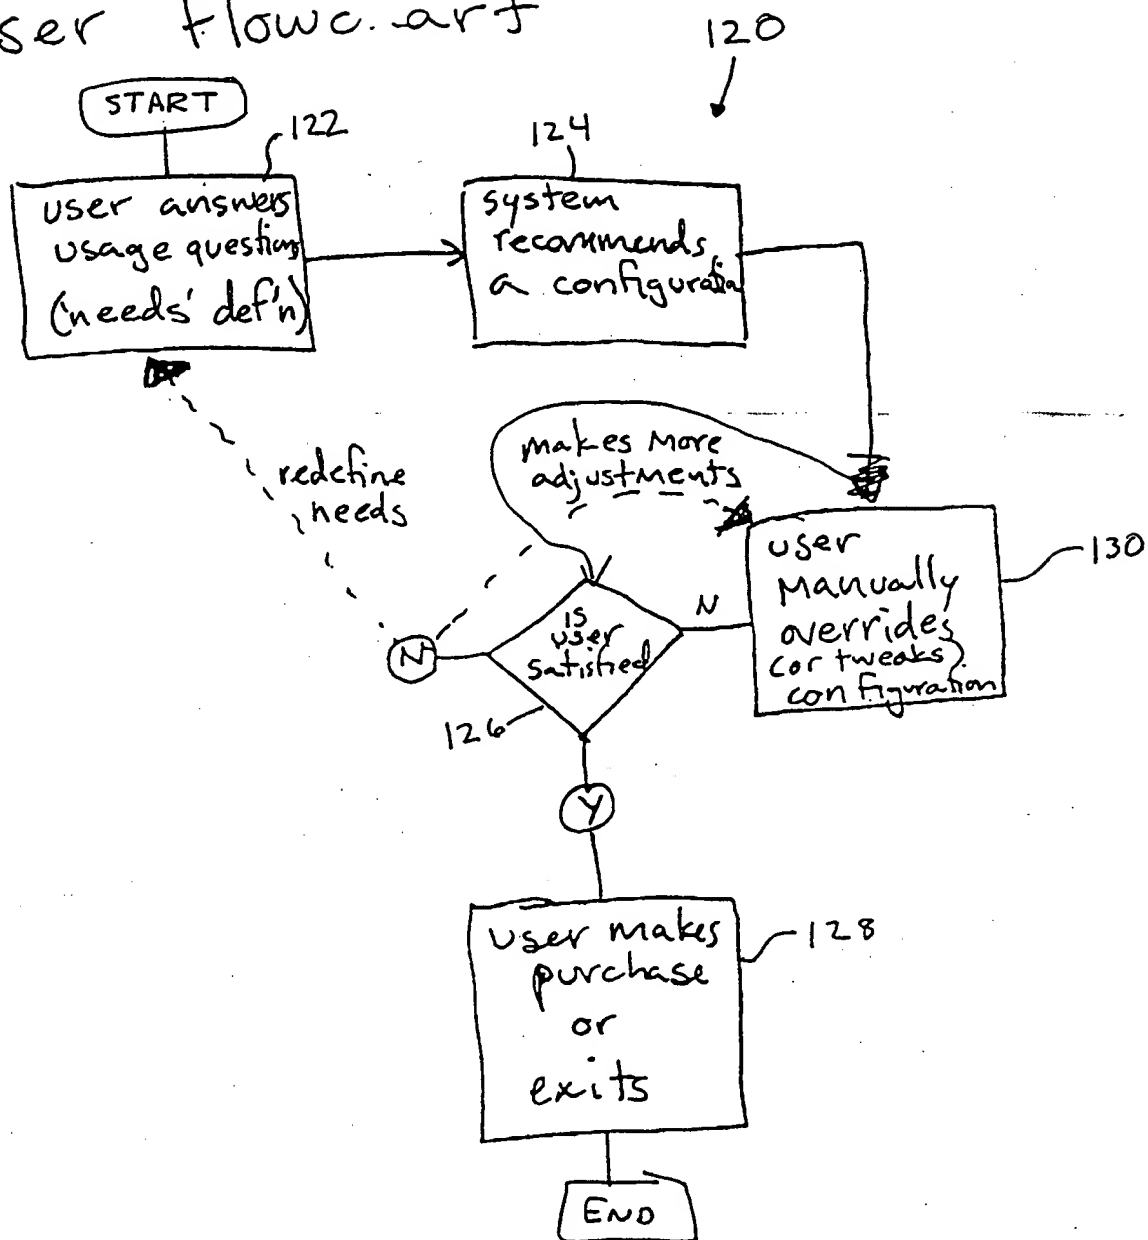 ser flowc.art
120
START
122
user answers
usage questions
(needs' def'n)
124
system
recommends
a configuration
makes more
adjustments
redefine
needs
user
manually
overrides
(or tweaks)
configuration
130
N
is
user
satisfied
N
126
Y
user makes
purchase
or
exits
128
END